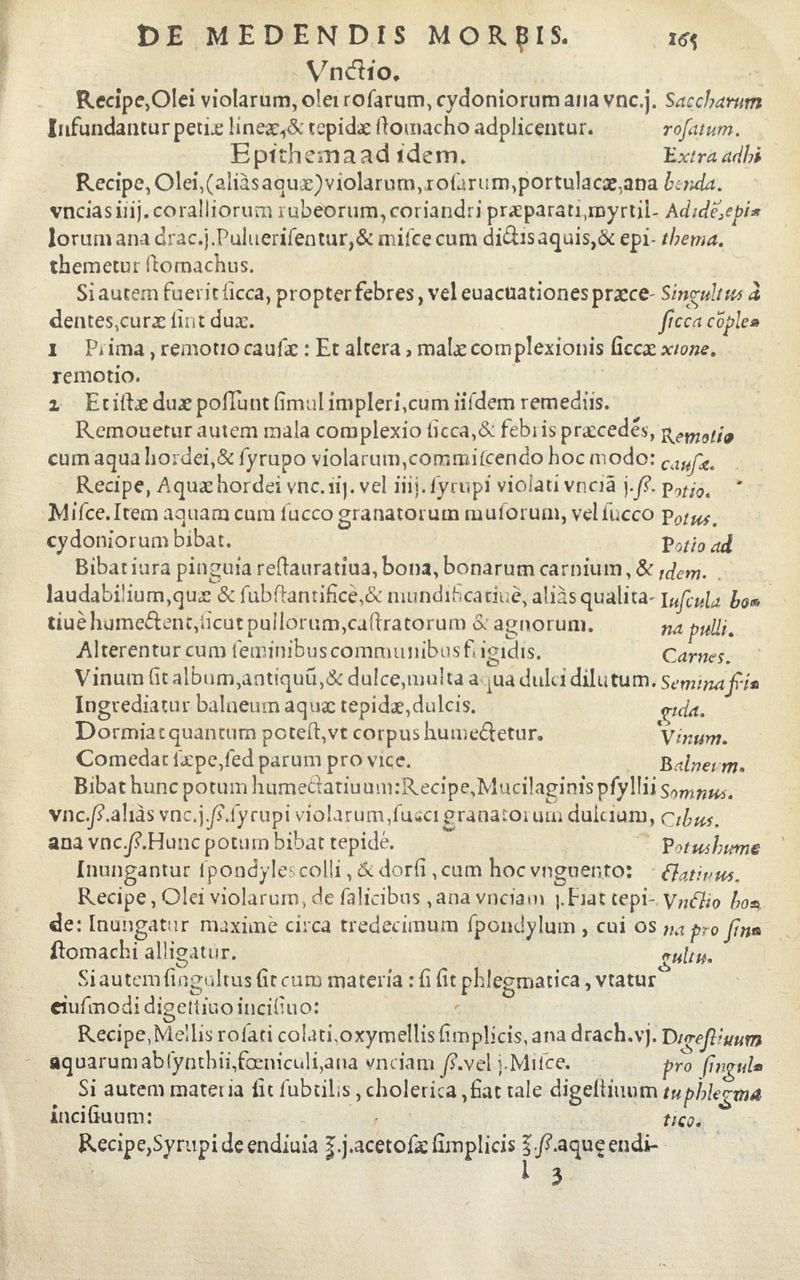 DE MEDENDIS MORBIS. 165
Vnctio.
Recipe,Olei violarum, olei rosarum, cydoniorum ana vnc.j. Saccharum
Infundantur petiæ lineæ,& tepidæ stomacho adplicentur. rosatum.
Epithema ad idem. Extra adhi
Recipe, Olei,(aliàs aquæ)violarum,rosarum,portulacæ,ana benda.
vncias iiij. coralliorum rubeorum, coriandri præparati,myrtil- Adidē,epi-
lorum ana drac.j.Puluerisentur,& misce cum dictis aquis,& epi- thema.
themetur stomachus.
Si autem fuerit sicca, propter febres, vel euacuationes præce- Singultus à
dentes,curæ sint duæ. sicca cōple-
1 Prima, remotio causæ : Et altera, malæ complexionis siccæ xione.
remotio.
2 Et istæ duæ possunt simul impleri,cum iisdem remediis.
Remouetur autem mala complexio sicca,& febris præcedēs, Remotio
cum aqua hordei,& syrupo violarum,commiscendo hoc modo: causæ.
Recipe, Aquæ hordei vnc.iij. vel iiij. syrupi violati vnciā j.ß. Potio.
Misce.Item aquam cum succo granatorum musorum, vel succo Potus.
cydoniorum bibat. Potio ad
Bibat iura pinguia restauratiua, bona, bonarum carnium, & idem.
laudabilium,quæ & substantificè,& mundificatiuè, aliàs qualita- Iuscula bo-
tiuè humectent,sicut pullorum,castratorum & agnorum. na pulli.
Alterentur cum seminibus communibus frigidis. Carnes.
Vinum sit album,antiquū,& dulce,multa aqua dulci dilutum. Semina fri-
Ingrediatur balneum aquæ tepidæ,dulcis. gida.
Dormiat quantum potest,vt corpus humectetur. Vinum.
Comedat sæpe,sed parum pro vice. Balneum.
Bibat hunc potum humectatiuum:Recipe,Mucilaginis psyllii Somnus.
vnc.ß.aliàs vnc.j.ß.syrupi violarum,succi granatorum dulcium, Cibus.
ana vnc.ß.Hunc potum bibat tepidè. Potus hume
Inungantur spondyles colli, & dorsi, cum hoc vnguento: ctatiuus.
Recipe, Olei violarum, de salicibus, ana vnciam j.Fiat tepi- Vnctio bo-
de: Inungatur maximè circa tredecimum spondylum, cui os na pro sin-
stomachi alligatur. gultu.
Si autem singultus sit cum materia : si sit phlegmatica, vtatur
eiusmodi digestiuo incisiuo:
Recipe,Mellis rosati colati,oxymellis simplicis, ana drach.vj. Digestiuum
aquarum absynthii,fœniculi,ana vnciam ß.vel j.Misce. pro singul-
Si autem materia sit subtilis, cholerica, fiat tale digestiuum tu phlegma
incisiuum: tico.
Recipe,Syrupi de endiuia ℥.j.acetosæ simplicis ℥.ß.aquę endi-
l 3